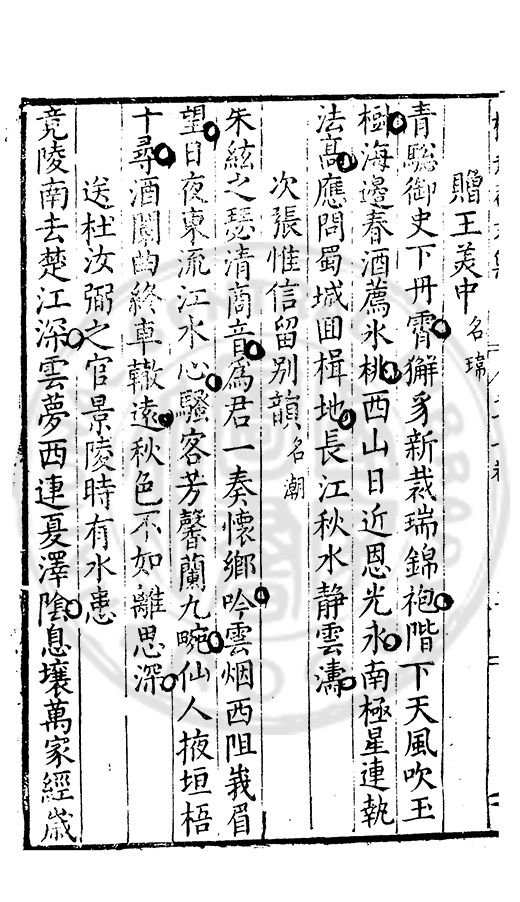 贈王羙中名
青驄御史下丹霄獬豸新裁瑞錦袍階下天風吹玉
樹海邊春酒薦氷桃西山日近恩光永南極星連執
法高應問蜀城囬楫地長江秋水静雲濤
次張惟信留别韻名潮
朱絃之瑟清商音爲君一奏懷鄉吟雲烟西阻峩眉
望日夜東流江水心騷客芳馨蘭九畹仙人掖垣梧
十尋酒闌曲終車轍遠秋色不如離思深
送杜汝弼之官景陵時有水患
竟陵南去楚江深雲夢西連夏澤陰息壤萬家經歲